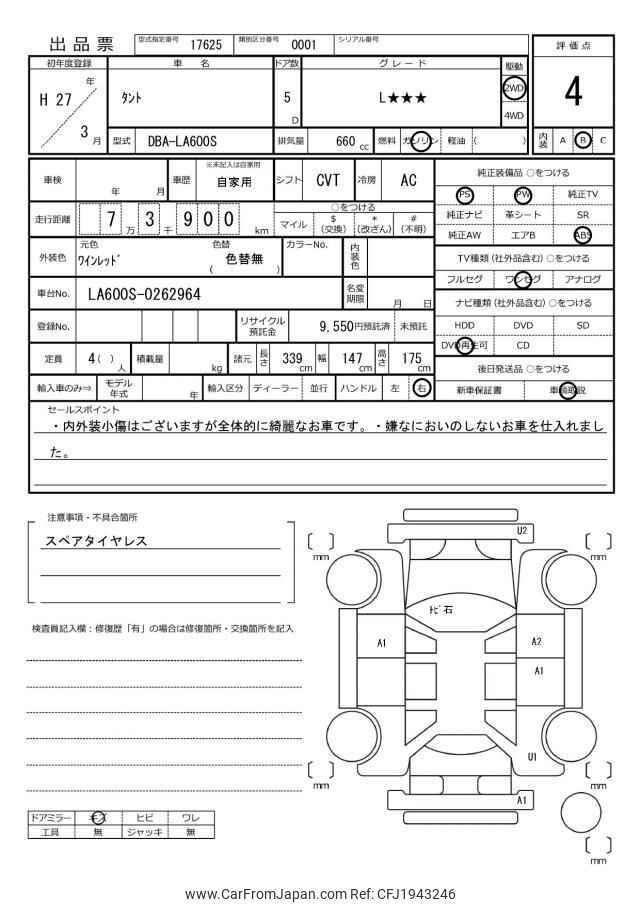 出品票 型式指定番号 17625 類別区分番号 0001 シリアル番号
評価点
4
内装 A B C
初年度登録 車名 ドア数 グレード 駆動
H 27 年 3 月
タント 5 D L★★★ 2WD 4WD
型式 DBA-LA600S 排気量 660 cc 燃料 ガソリン 軽油 ( )
車検 年 月 車歴 ※未記入は自家用 自家用 シフト CVT 冷房 AC
走行距離 7 万 3 千 9 0 0 km
○をつける
マイル $ (交換) * (改ざん) # (不明)
外装色 元色 ワインレッド 色替 ( 色替無 ) カラーNo. 内装色
車台No. LA600S-0262964 名変期限 月 日
登録No. リサイクル預託金 9,550円預託済 未預託
定員 4 ( ) 人 積載量 kg 諸元 長さ 339 cm 幅 147 cm 高さ 175 cm
輸入車のみ⇒ モデル年式 年 輸入区分 ディーラー 並行 ハンドル 左 右
純正装備品 ○をつける
PS PW 純正TV
純正ナビ 革シート SR
純正AW エアB ABS
TV種類 (社外品含む) ○をつける
フルセグ ワンセグ アナログ
ナビ種類 (社外品含む) ○をつける
HDD DVD SD
DVD再生可 CD
後日発送品 ○をつける
新車保証書 車輌取説
セールスポイント
・内外装小傷はございますが全体的に綺麗なお車です。・嫌なにおいのしないお車を仕入れまし
た。
注意事項・不具合箇所
スペアタイヤレス
検査員記入欄：修復歴「有」の場合は修復箇所・交換箇所を記入
U2
mm
mm
トビ石
A1
A2
A1
U1
mm
mm
A1
mm
ドアミラー キズ ヒビ ワレ
工具 無 ジャッキ 無
www.CarFromJapan.com Ref: CFJ1943246